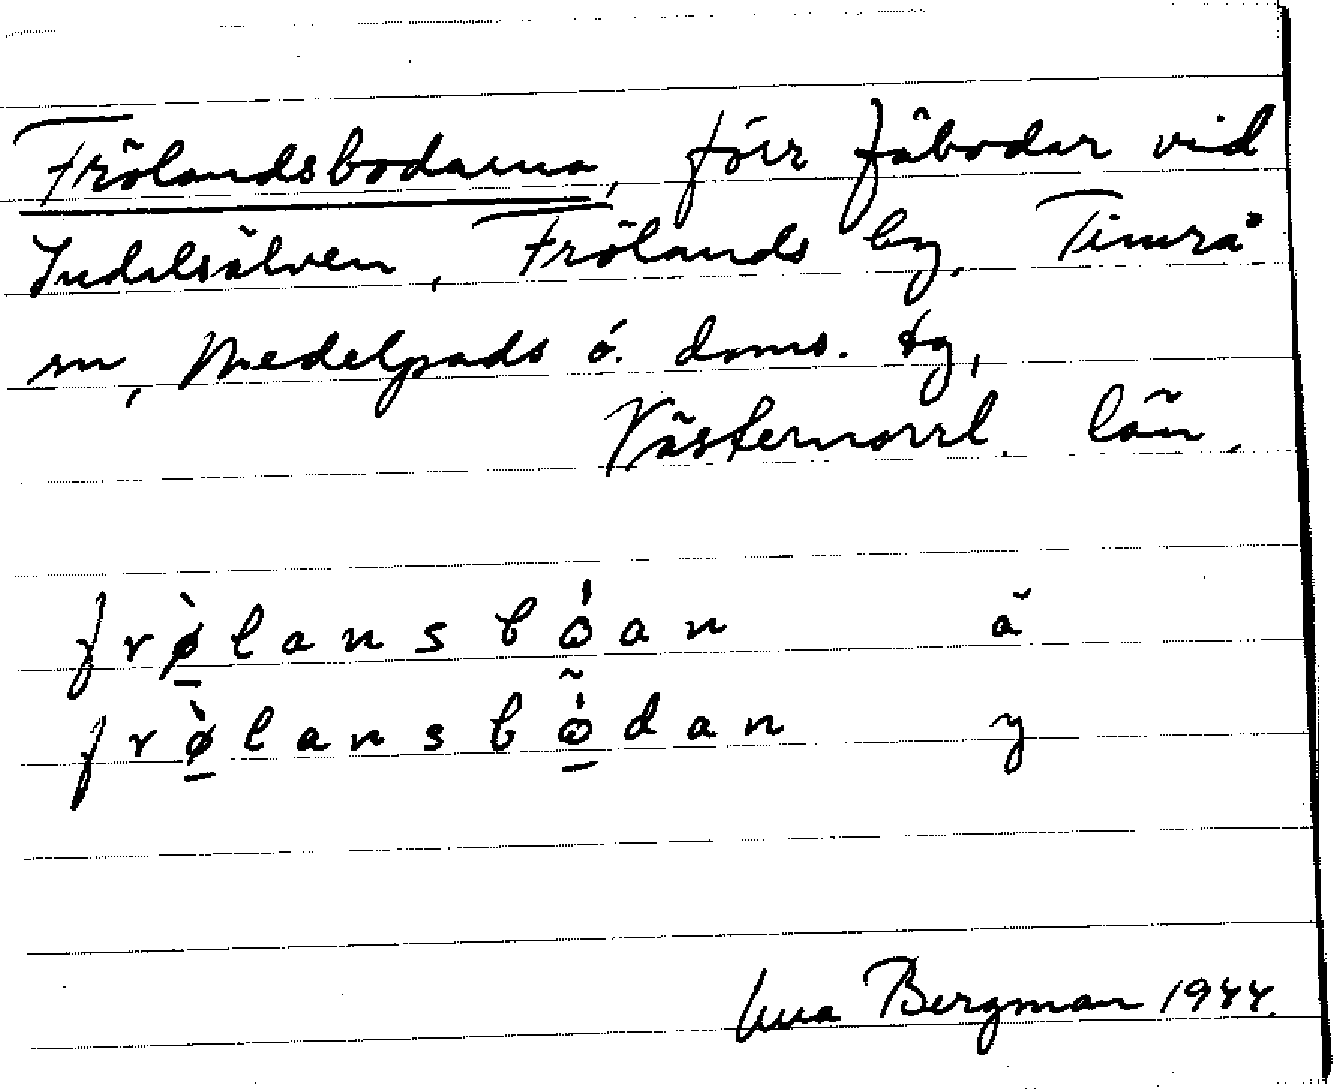 Frölandsbodarna, förr fäbodar vid
Indalsälven, Frölands by, Timrå
sn, Medelpads ö. doms. tg,
Västernorrl. län.
frø̀lansbóan ä
frø̀lansbódan y
Bergman 1944.